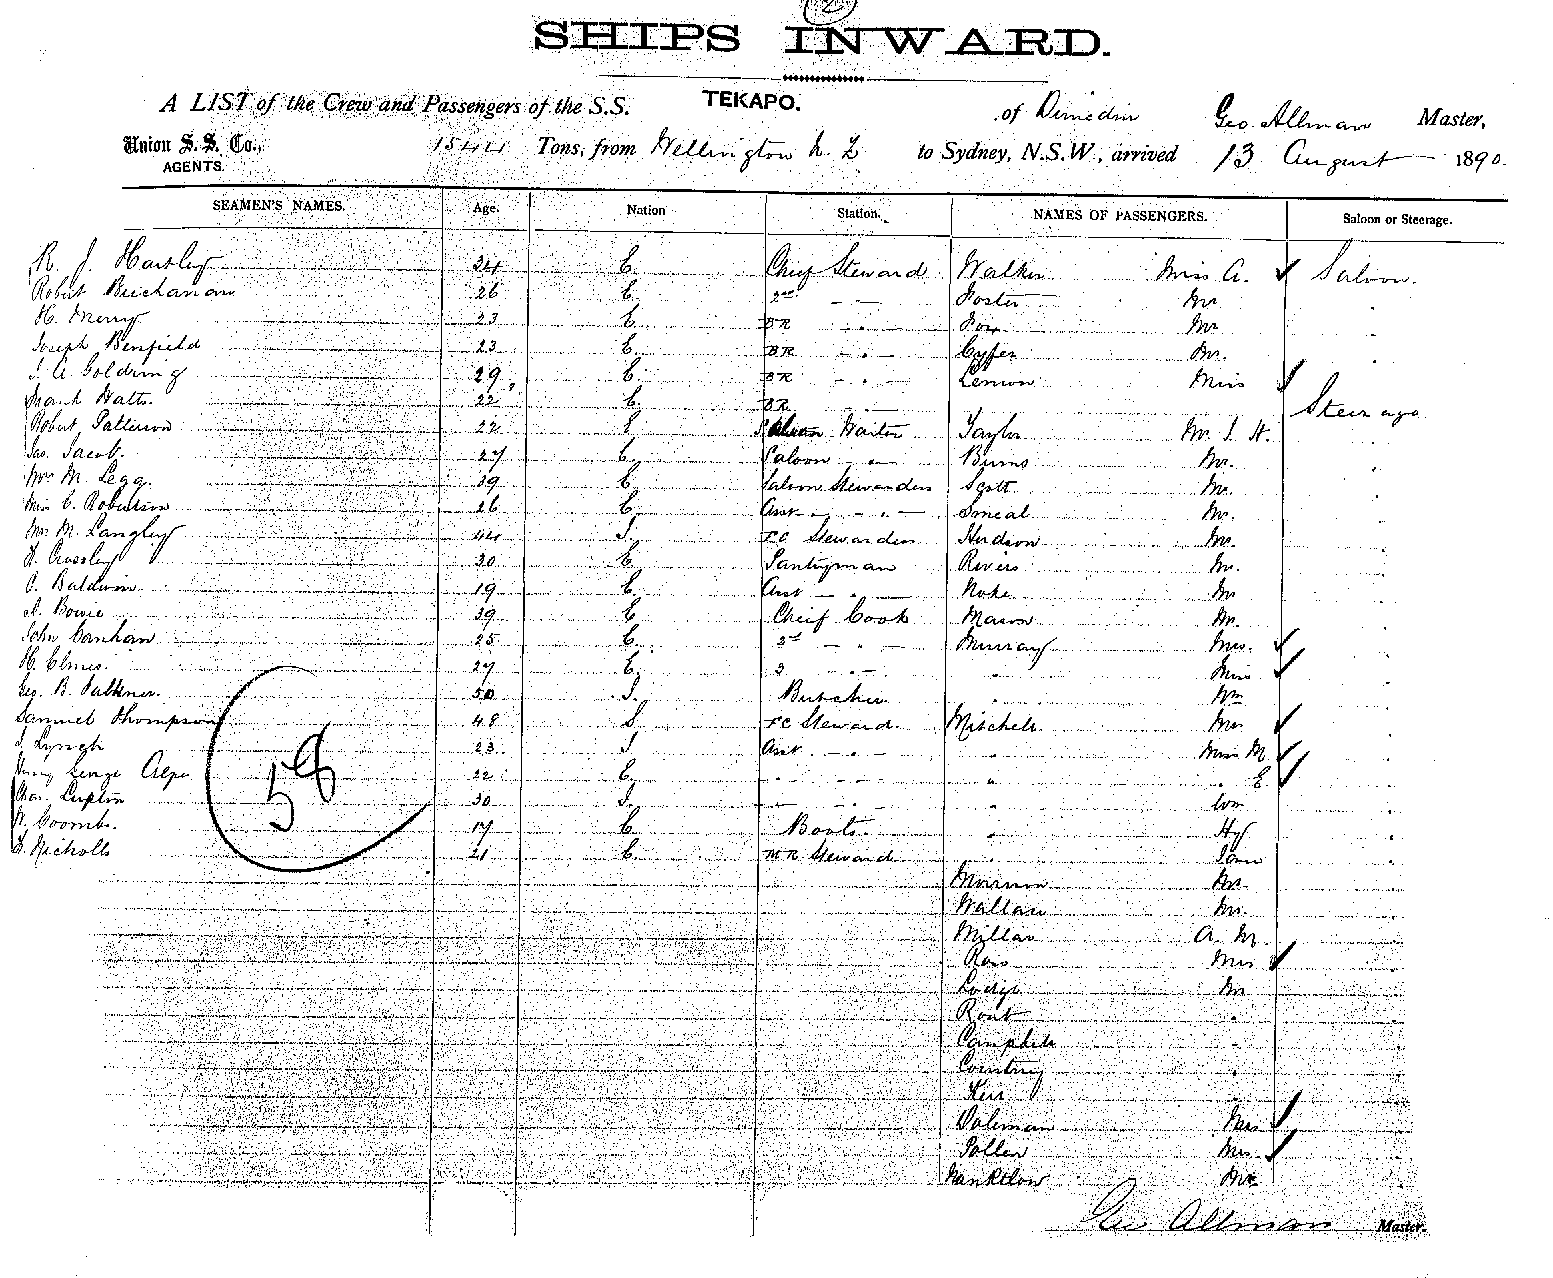 SHIPS INWARD.
A LIST of the Crew and Passengers of the S.S. TEKAPO. of Dunedin Geo. Allman Master,
Union S. S. Co., AGENTS. 1544 Tons, from Wellington N Z to Sydney, N.S.W., arrived 13 August 1890.
SEAMEN'S NAMES. Age. Nation Station. NAMES OF PASSENGERS. Saloon or Steerage.
R. J. Hartley 34 E Chief Steward Walker Miss A. Saloon.
Robert Buchanan 26 E 2nd " Foster Mr
H. Merry 23 E BR " Fox Mr
Joseph Benfield 23 E BR " Cyfer Mr.
J. A. Goldring 29 E BR " Lemon Miss
Frank Watts. 22 E BR Steerage
Robert Patterson 22 E Saloon Waiter Taylor Mr. J. H.
Jas. Jacob. 27 E Saloon " Burns Mr.
Mrs M. Legg. 39 E Saloon Stewardess Scott Mr.
Miss C. Robertson 26 E Asst " Smeal Mr.
Mrs M. Langley 44 I. FC Stewardess Hudson Mr.
H. Crossley 30 E Pantryman Rivers Mr.
C. Baldwin 19 E Asst " Noke Mr
A. Bowie 39 E Chief Cook Mason Mr.
John Canham 25 E 2nd " Murray Mrs.
H. Elmes. 27 E 3 " " Miss
Geo. B. Faulkner. 50 I. Butcher " Wm
Samuel Thompson 48 S FC Steward Mitchell Mrs
J. Lynch 23 I Asst " " Miss M
Henry George Alpe 22 E " " " " E
Chas. Lupton 30 I. " " " Wm
W. Coombs. 17 E Boots. " Hy
F. Nicholls 21 E MR Steward " Sam
58
Morrison Mr.
Wallace Mr.
Millar A. M.
Ross Mrs
Lodge Mr
Rout "
Campbell "
Courtney "
Kerr "
Coleman Mrs
Pollen Mrs
Mr
Geo Allman Master.